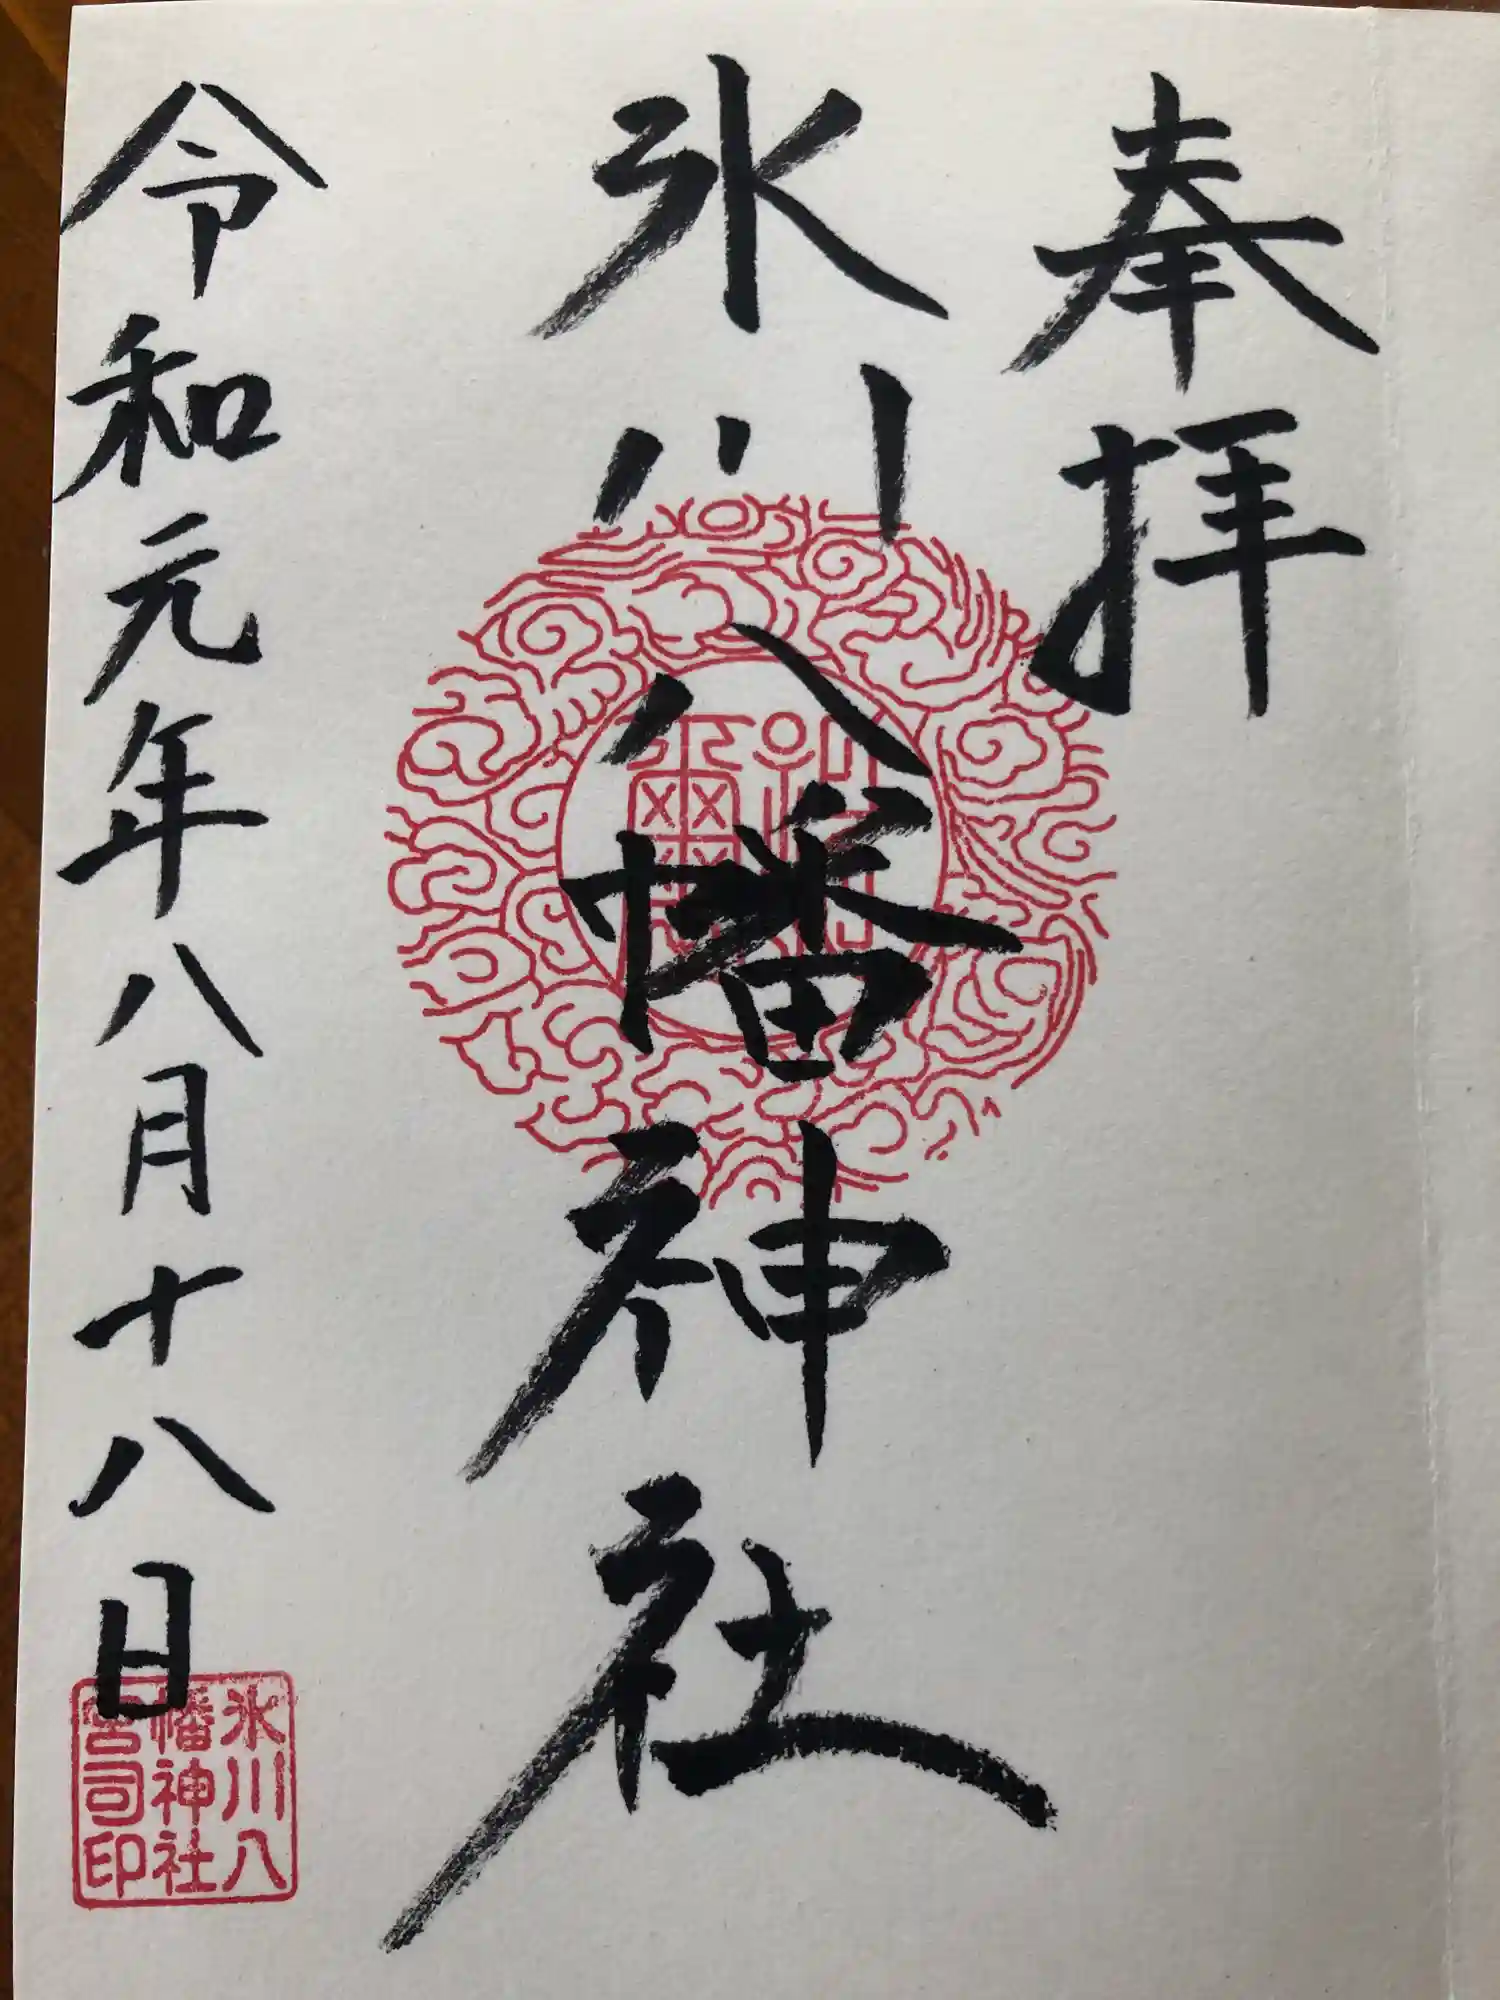 奉拝
氷川八幡神社
令和元年八月十八日
氷川八
幡神社
宮司印